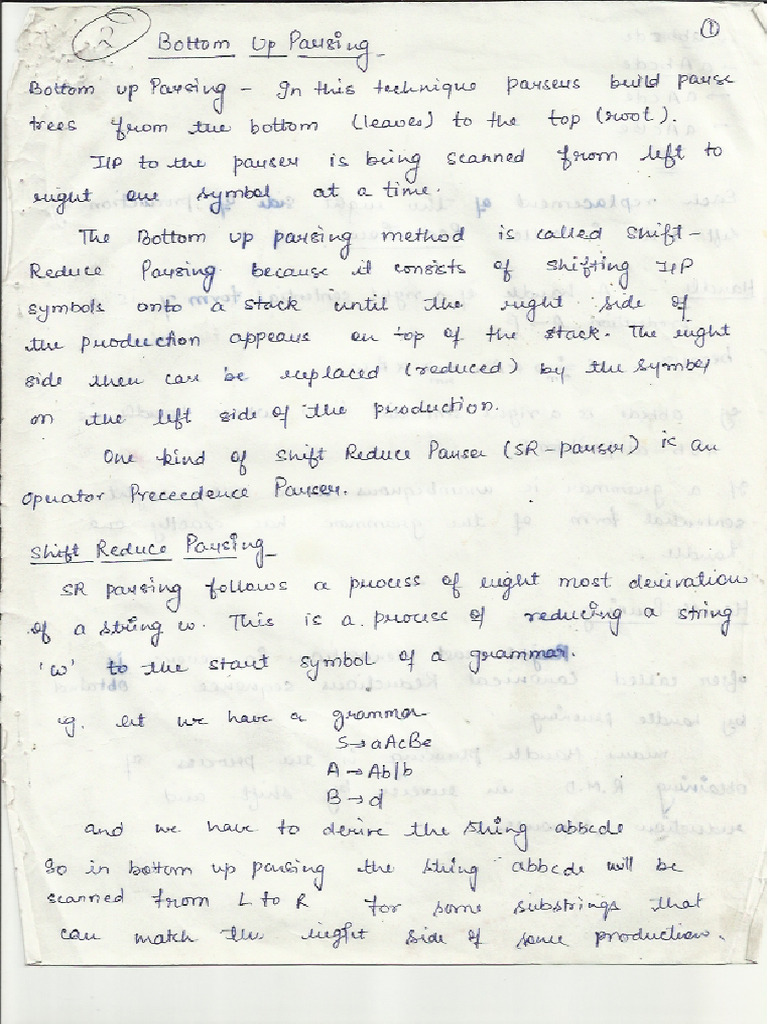 2
1
Bottom Up Parsing
Bottom up Parsing - In this technique parsers build parse
trees from the bottom (leaves) to the top (root).
I/P to the parser is being scanned from left to
right one symbol at a time.
The Bottom up parsing method is called Shift-
Reduce Parsing because it consists of shifting I/P
symbols onto a stack until the right side of
the production appears on top of the stack. The right
side then can be replaced (reduced) by the symbol
on the left side of the production.
One kind of Shift Reduce Parser (SR-parser) is an
Operator Preceedence Parser.
Shift Reduce Parsing
SR parsing follows a process of right most derivation
of a string w. This is a process of reducing a string
'w' to the start symbol of a grammar.
eg. let we have a grammar
S→aAcBe
A→Ab/b
B→d
and we have to derive the string abbcde
So in bottom up parsing the string abbcde will be
scanned from L to R for some substrings that
can match the right side of some production.